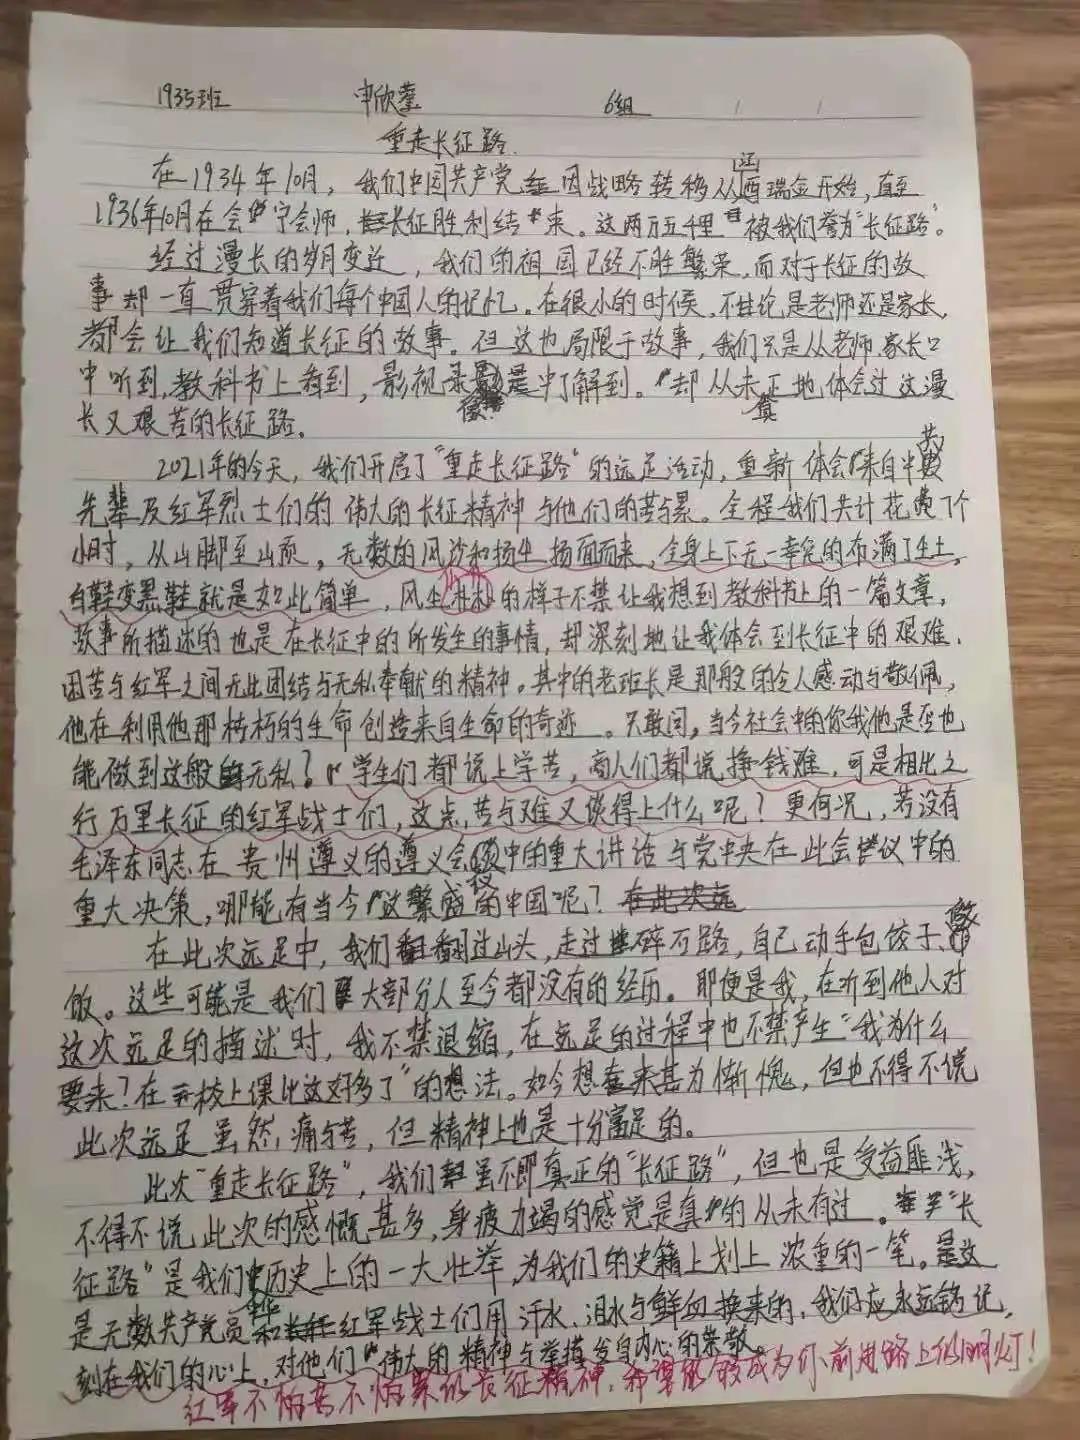 1935班 申欣 6组
重走长征路
在1934年10月，我们中国共产党因战略转移从江西瑞金开始，直至
1936年10月在会宁会师，长征胜利结束。这两万五千里被我们誉为“长征路”。
经过漫长的岁月变迁，我们的祖国已经不胜繁荣，而对于长征的故
事却一直贯穿着我们每个中国人的记忆。在很小的时候，不论是老师还是家长，
都会让我们知道长征的故事。但这也局限于故事，我们只是从老师、家长口
中听到，教科书上看到，影视录像中了解到。却从未真正地体会过这漫
长又艰苦的长征路。
2021年的今天，我们开启了“重走长征路”的远足活动，重新体会来自中共
先辈及红军烈士们的伟大的长征精神与他们的苦与累。全程我们共计花费7个
小时，从山脚至山顶，无数的风沙和扬尘扬面而来，全身上下无一幸免的布满了尘土，
白鞋变黑鞋就是如此简单，风尘仆仆的样子不禁让我想到教科书上的一篇文章，
故事所描述的也是在长征中的所发生的事情，却深刻地让我体会到长征中的艰难、
困苦与红军之间无比团结与无私奉献的精神。其中的老班长是那般的令人感动与敬佩，
他在利用他那枯朽的生命创造来自生命的奇迹。只敢问，当今社会中的你我他是否也
能做到这般无私？学生们都说上学苦，商人们都说挣钱难，可是相比之
行万里长征的红军战士们，这点苦与难又谈得上什么呢？更何况，若没有
毛泽东同志在贵州遵义的遵义会议中的重大讲话与党中央在此会议中的
重大决策，哪能有当今这繁盛的中国呢？
在此次远足中，我们翻过山头，走过碎石路，自己动手包饺子、做
饭。这些可能是我们大部分人至今都没有的经历。即便是我，在听到他人对
这次远足的描述时，我不禁退缩，在远足的过程中也不禁产生“我为什么
要来？在学校上课比这好多了”的想法。如今想来甚为惭愧，但也不得不说
此次远足虽然痛苦，但精神上也是十分富足的。
此次“重走长征路”，我们虽不即真正的“长征路”，但也是受益匪浅，
不得不说此次的感慨甚多，身疲力竭的感觉是真的从未有过。“长
征路”是我们历史上的一大壮举，为我们的史籍上划上浓重的一笔。这
是无数共产党员和红军战士们用汗水、泪水与鲜血换来的，我们应永远铭记，
刻在我们的心上，对他们伟大的精神与举措发自内心的崇敬。
红军不怕苦不怕累的长征精神，希望能够成为你前进路上的明灯！